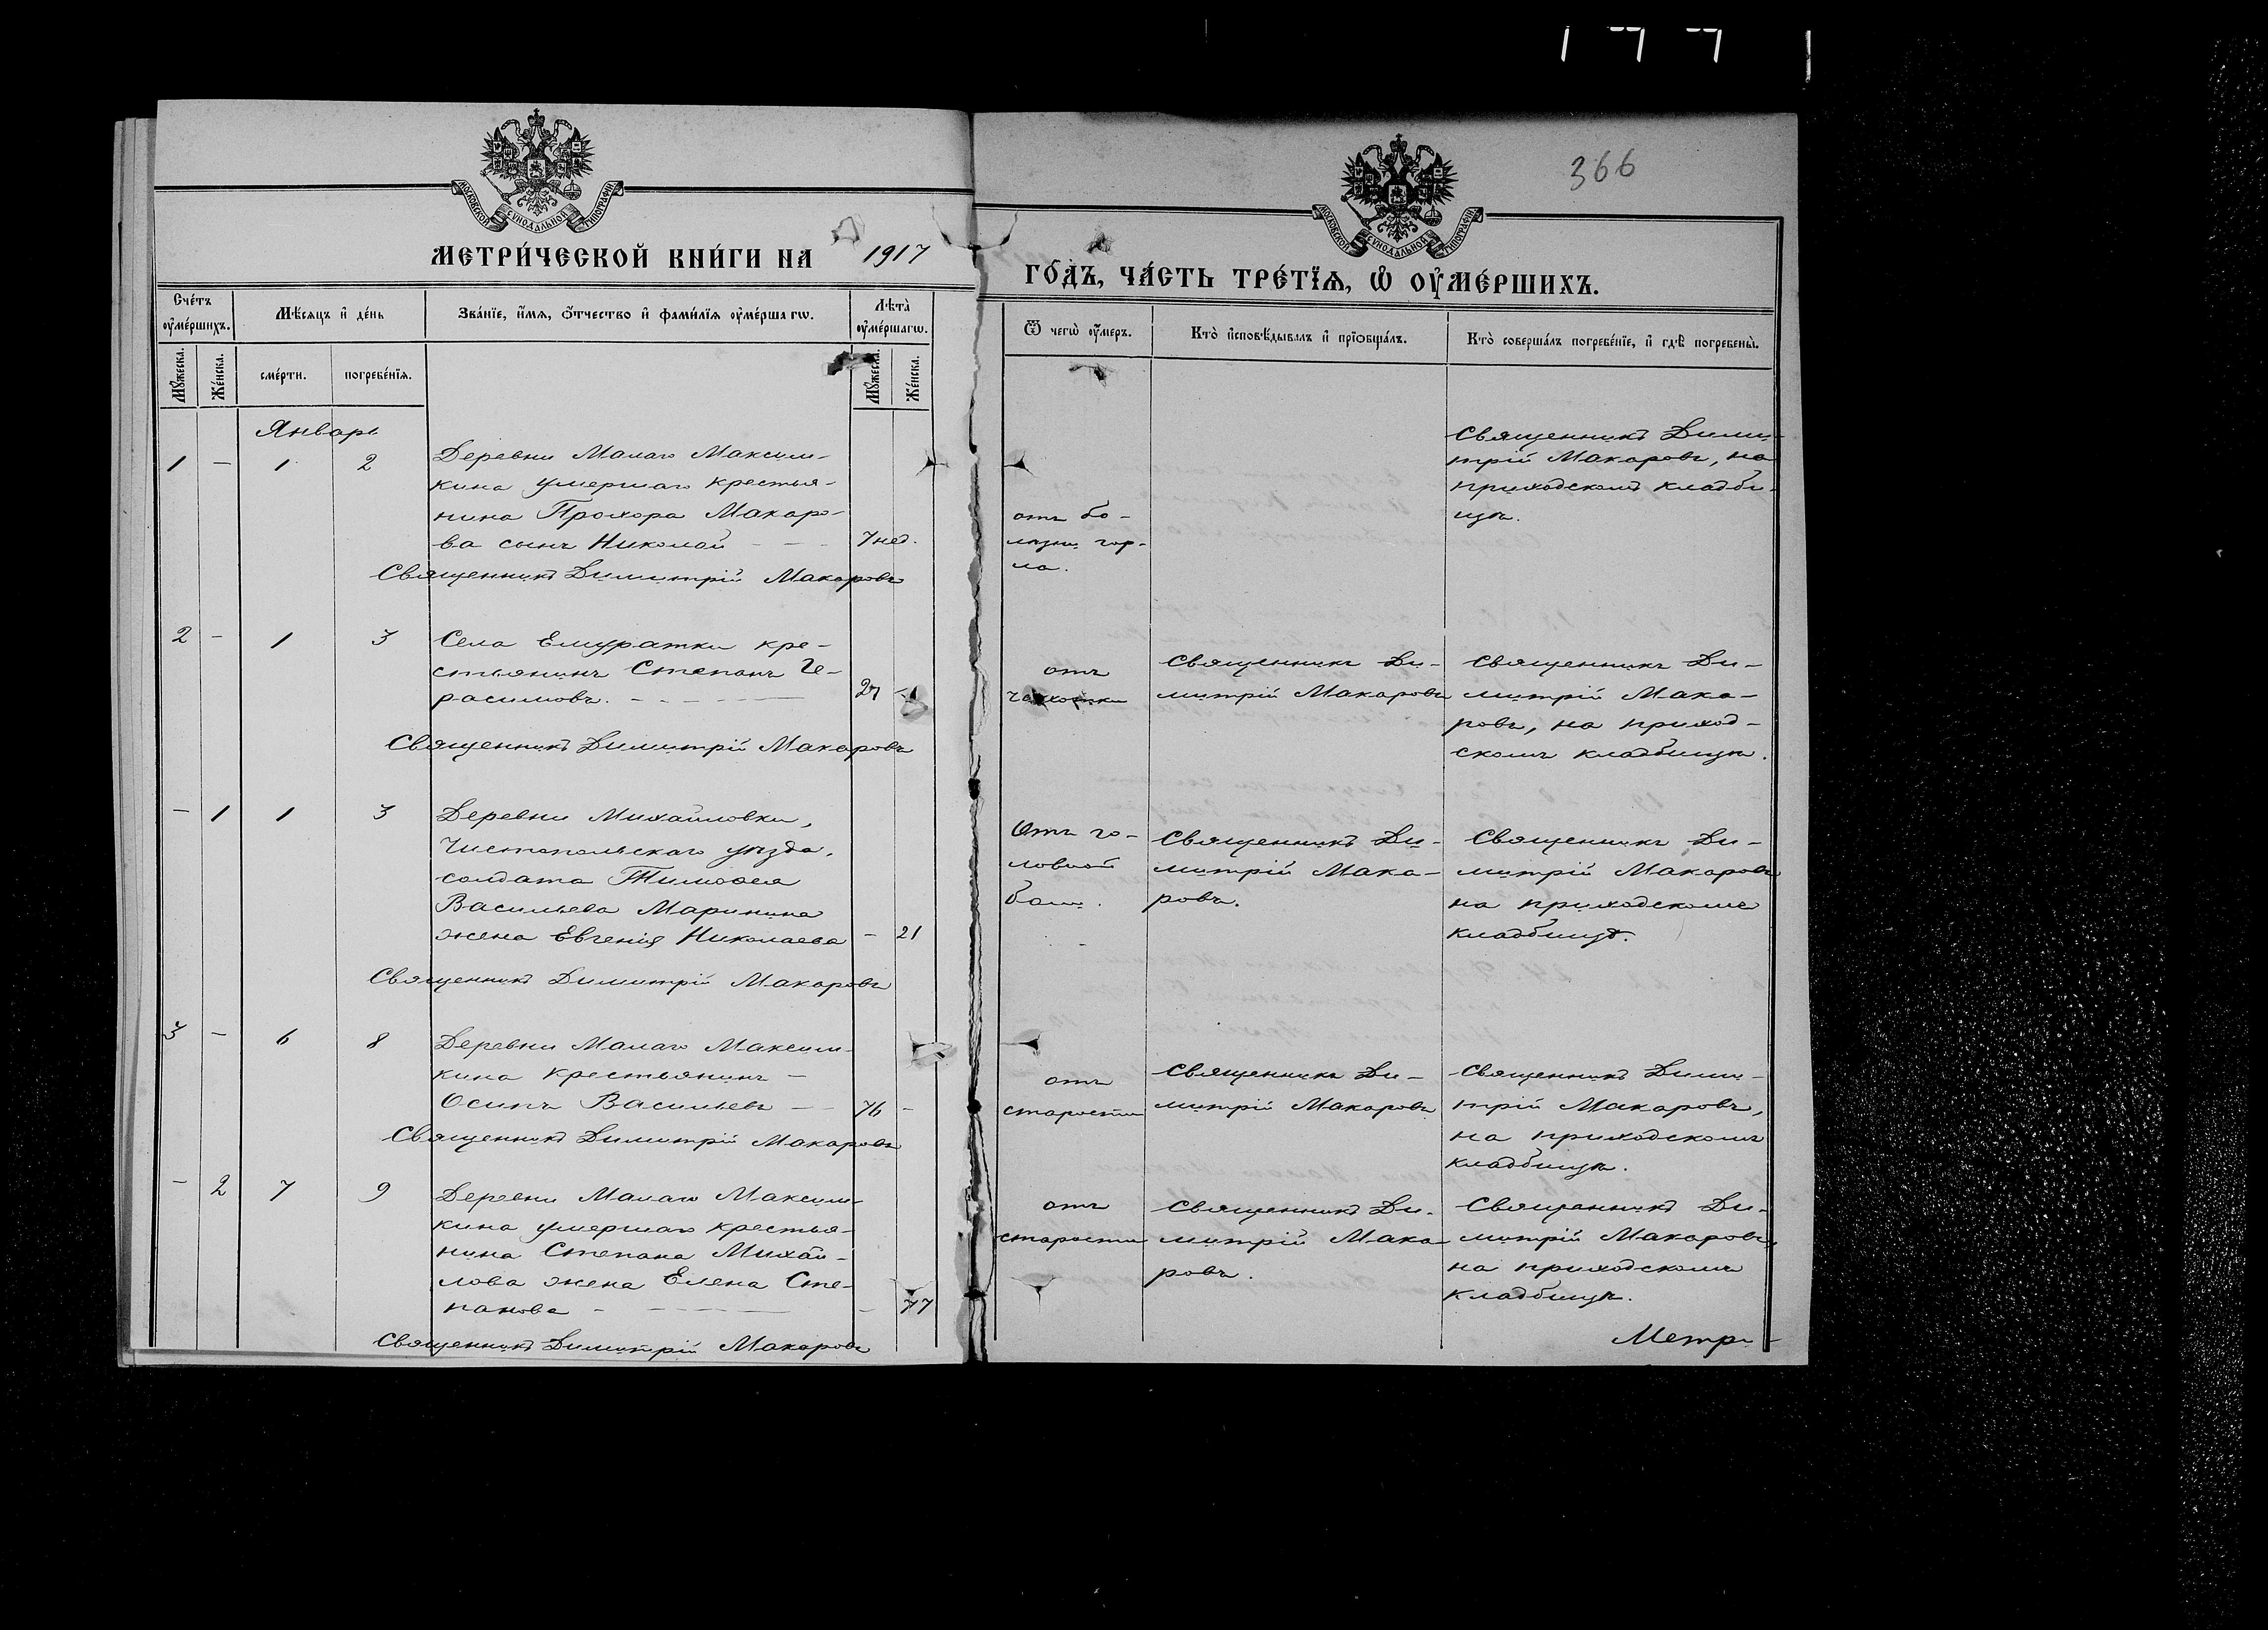 366
МОСКОВСКОЙ СУНОДАЛЬНОЙ ТИПОГРАФІИ
МОСКОВСКОЙ СУНОДАЛЬНОЙ ТИПОГРАФІИ
МЕТРИ́ЧЕСКОЙ КНИ́ГИ НА 1917
ГО́ДЪ, ЧА́СТЬ ТРЕ́ТЇѦ, Ѡ҆ ОУ҆МЕ́РШИХЪ.
Сче́тъ оу҆ме́ршихъ.
Мѣ́сяцъ и҆ де́нь
Зва́нїе, и҆́мѧ, ѻ҆́тчество и҆ фами́лїѧ оу҆ме́ршагѡ.
Лѣ̀та оу҆ме́ршагѡ.
Мꙋ́жеска.
Же́нска.
сме́рти.
погребе́нїѧ.
Мꙋ́жеска.
Же́нска.
Ѿ чегѡ̀ оу҆́меръ.
Кто̀ и҆сповѣ́дывалъ и҆ прїѻбща́лъ.
Кто̀ соверша́лъ погребе́нїе, и҆ гдѣ̀ погребены̀.
Январь
1 – 1 2 Деревни Малаго Максим-
кина умершаго крестья-
нина Прохора Макаро-
ва сынъ Николай – – – 7 нед.
Священникъ Димитрій Макаровъ
отъ бо-
лѣзни гор-
ла.
Священникъ Дими-
трій Макаровъ, на
приходскомъ кладби-
щѣ.
2 – 1 3 Села Емуратки кре-
стьянинъ Степанъ Ге-
расимовъ. – – – – 27 –
Священникъ Димитрій Макаровъ
отъ
чахотки
Священникъ Ди-
митрій Макаровъ
Священникъ Ди-
митрій Мака-
ровъ, на приход-
скомъ кладбищѣ.
– 1 1 3 Деревни Михайловки,
Чистопольскаго уѣзда,
солдата Тимоѳея
Васильева Маринина
жена Евгенія Николаева – 21
Священникъ Димитрій Макаровъ
Отъ го-
ловной
боли.
Священникъ Ди-
митрій Мака-
ровъ.
Священникъ Ди-
митрій Макаровъ
на приходскомъ
кладбищѣ.
3 – 6 8 Деревни Малаго Максим-
кина крестьянинъ –
Осипъ Васильевъ – 76 –
Священникъ Димитрій Макаровъ
отъ
старости
Священникъ Ди-
митрій Макаровъ
Священникъ Дими-
трій Макаровъ,
на приходскомъ
кладбищѣ.
– 2 7 9 Деревни Малаго Максим-
кина умершаго крестья-
нина Степана Михай-
лова жена Елена Сте-
панова – – – – – 77
Священникъ Димитрій Макаровъ
отъ
старости
Священникъ Ди-
митрій Мака
ровъ.
Священникъ Ди-
митрій Макаровъ,
на приходскомъ
кладбищѣ.
Метр-